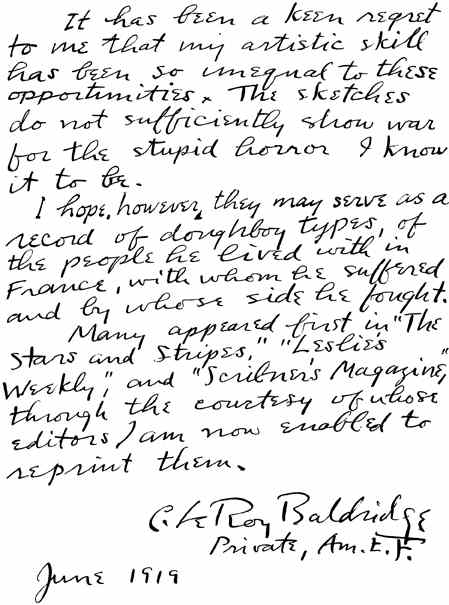 It has been a keen regret
to me that my artistic skill
has been so unequal to these
opportunities. The sketches
do not sufficiently show war
for the stupid horror I know
it to be.
I hope, however, they may serve as a
record of doughboy types, of
the people he lived with in
France, with whom he suffered
and by whose side he fought.
Many appeared first in "The
Stars and Stripes," "Leslie's
Weekly," and "Scribner's Magazine,"
through the courtesy of whose
editors I am now enabled to
reprint them.
C. LeRoy Baldridge
Private, Am. E. F.
June 1919